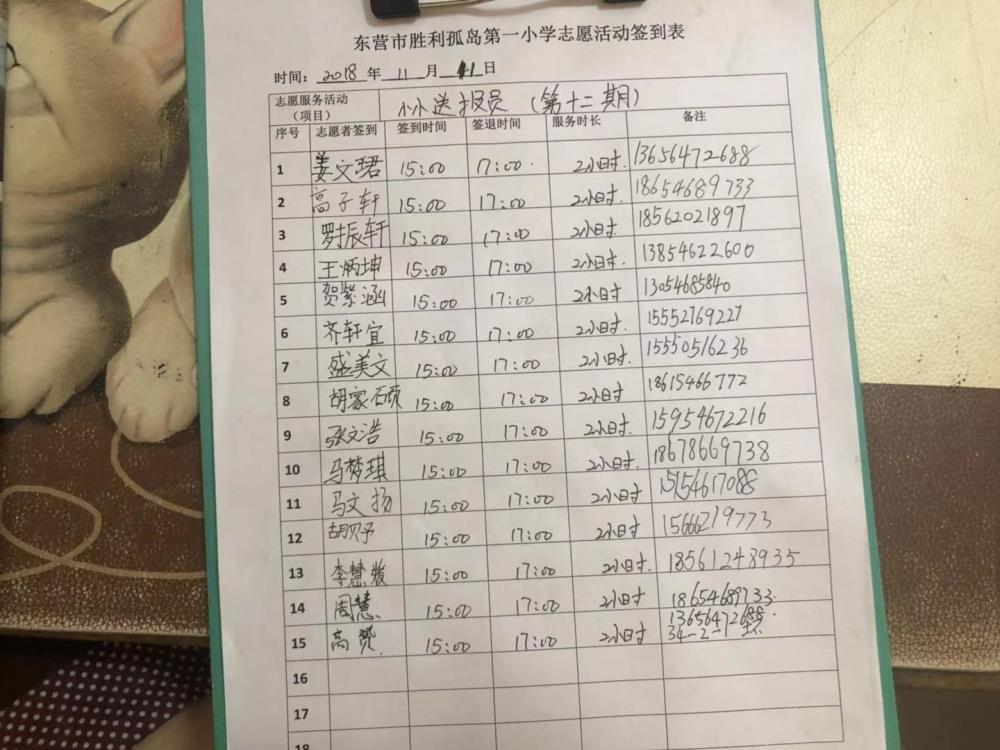 东营市胜利孤岛第一小学志愿活动签到表
时间: 2018 年 11 月 11 日
志愿服务活动（项目） 小小送报员（第十二期）
序号 志愿者签到 签到时间 签退时间 服务时长 备注
1 姜文珺 15:00 17:00 2小时 13656472688
2 高子轩 15:00 17:00 2小时 18654689733
3 罗振轩 15:00 17:00 2小时 18562021897
4 王炳坤 15:00 17:00 2小时 13854622600
5 贺紫涵 15:00 17:00 2小时 13054685840
6 齐轩宜 15:00 17:00 2小时 15552769227
7 盛美文 15:00 17:00 2小时 15550516236
8 胡家硕 15:00 17:00 2小时 18615466772
9 张文浩 15:00 17:00 2小时 15954672216
10 马梦琪 15:00 17:00 2小时 18678669738
11 马文扬 15:00 17:00 2小时 15154617088
12 胡贝予 15:00 17:00 2小时 15666219773
13 李慧 15:00 17:00 2小时 18561248935
14 周慧 15:00 17:00 2小时 18654689733
15 高赞 15:00 17:00 2小时 13656472688
34-2-1
16
17
18